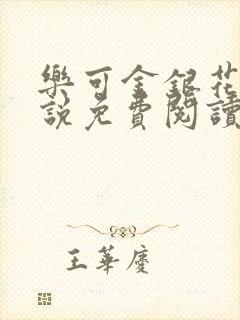 樂可金銀花
說免費閱讀
王華慶